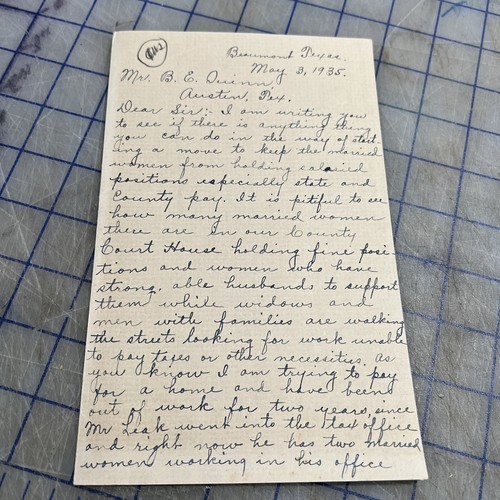 Beaumont Texas.
May 3, 1935.
Mr. B. E. Quinn
Austin, Tex.
Dear Sir:- I am writing you
to see if there is anything
you can do in the way of start-
ing a move to keep the married
women from holding salaried
positions especially state and
County pay. It is pitiful to see
how many married women
there are in our County
Court House holding fine posi
tions and women who have
strong, able husbands to support
them while widows and
men with families are walking
the streets looking for work unable
to pay taxes or other necessities. as
you know I am trying to pay
for a home and have been
out of work for two years, since
Mr Leak went into the tax office
and right now he has two married
women working in his office